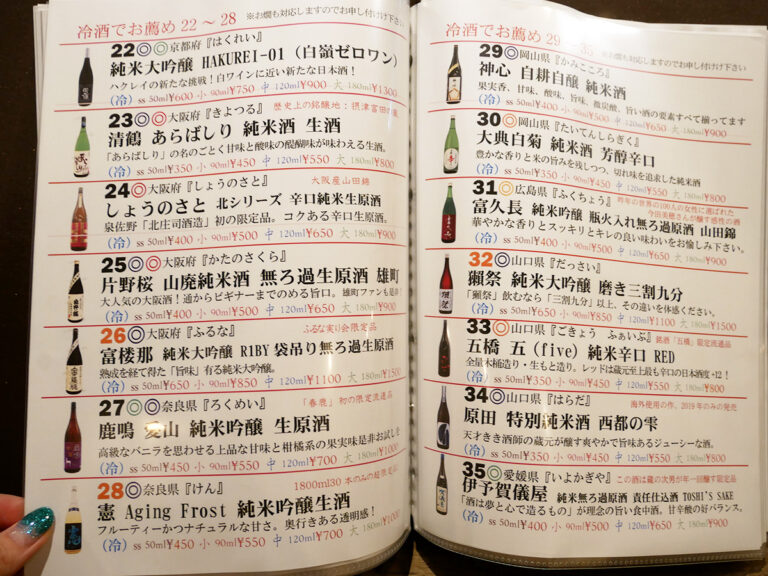 冷酒でお薦め 22～28 ※お燗も対応しますのでお申し付け下さい
22◎◎京都府『はくれい』
純米大吟醸 HAKUREI-01（白嶺ゼロワン）
ハクレイの新たな挑戦！白ワインに近い新たな日本酒！
（冷） ss 50ml¥600 小 90ml¥750 中 120ml¥900 大 180ml¥1300
23◎◎大阪府『きよつる』 歴史上の銘醸地：摂津富田の蔵
清鶴 あらばしり 純米酒 生酒
「あらばしり」の名のごとく甘味と酸味の醍醐味が味わえる生酒。
（冷） ss 50ml¥350 小 90ml¥450 中 120ml¥550 大 180ml¥800
24◎大阪府『しょうのさと』 大阪産山田錦
しょうのさと 北シリーズ 辛口純米生原酒
泉佐野「北庄司酒造」初の限定品。コクある辛口生原酒。
（冷） ss 50ml¥400 小 90ml¥500 中 120ml¥650 大 180ml¥900
25◎◎大阪府『かたのさくら』
片野桜 山廃純米酒 無ろ過生原酒 雄町
大人気の大阪酒！通からビギナーまでのめる旨口。雄町ファンも是非！
（冷） ss 50ml¥400 小 90ml¥500 中 120ml¥650 大 180ml¥900
26◎大阪府『ふるな』 ふるな実り会限定品
富楼那 純米大吟醸 R1BY 袋吊り無ろ過生原酒
熟成を経て得た「旨味」有る純米大吟醸。
（冷） ss 50ml¥650 小 90ml¥850 中 120ml¥1100 大 180ml¥1500
27◎◎奈良県『ろくめい』 「春鹿」初の限定流通品
鹿鳴 愛山 純米吟醸 生原酒
高級なバニラを思わせる上品な甘味と柑橘系の果実味是非お試しを
（冷） ss 50ml¥450 小 90ml¥550 中 120ml¥700 大 180ml¥1000
28◎奈良県『けん』 1800ml30本のみの超限定品
憲 Aging Frost 純米吟醸生酒
フルーティーかつナチュラルな甘さ。奥行きある透明感！
（冷） ss 50ml¥450 小 90ml¥550 中 120ml¥700 大 180ml¥1000
冷酒でお薦め 29～35 ※お燗も対応しますのでお申し付け下さい
29◎岡山県『かみこころ』
神心 自耕自醸 純米酒
果実香、甘味、酸味、旨味、微炭酸、旨い酒の要素すべて揃ってます
（冷） ss 50ml¥400 小 90ml¥500 中 120ml¥650 大 180ml¥900
30◎岡山県『たいてんしらぎく』
大典白菊 純米酒 芳醇辛口
豊かな香りと米の旨みを残しつつ、切れ味を追求した純米酒
（冷） ss 50ml¥350 小 90ml¥450 中 120ml¥550 大 180ml¥800
31◎広島県『ふくちょう』 昨年の世界の100人の女性に選ばれた
今田美穂さんが醸す感性の酒
富久長 純米吟醸 瓶火入れ無ろ過原酒 山田錦
華やかな香りとスッキリとキレの良い味わいをお愉しみ下さい。
（冷） ss 50ml¥400 小 90ml¥500 中 120ml¥650 大 180ml¥900
32◎山口県『だっさい』
獺祭 純米大吟醸 磨き三割九分
「獺祭」飲むなら「三割九分」以上、その違いを体感ください。
（冷） ss 50ml¥650 小 90ml¥850 中 120ml¥1100 大 180ml¥1500
33◎山口県『ごきょう ふぁいぶ』 銘酒「五橋」限定流通品
五橋 五（five）純米辛口 RED
全量木桶造り・生もと造り。レッドは蔵元至上最も辛口の日本酒度+12！
（冷） ss 50ml¥400 小 90ml¥500 中 120ml¥650 大 180ml¥900
34◎山口県『はらだ』 海外使用の作、2019年のみの発売
原田 特別純米酒 西都の雫
天才すき酒師の蔵元が醸す爽やかで旨味あるジューシーな酒。
（冷） ss 50ml¥350 小 90ml¥450 中 120ml¥550 大 180ml¥800
35◎愛媛県『いよかぎや』 この酒は蔵の次男が年一回醸す限定品
伊予賀儀屋 純米無ろ過原酒 責任仕込酒 TOSHI'S SAKE
「酒は夢と心で造るもの」が理念の旨い食中酒。甘辛酸の好バランス。
（冷） ss 50ml¥400 小 90ml¥500 中 120ml¥650 大 180ml¥900